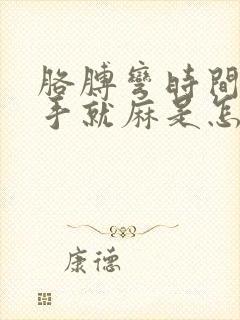 胳膊彎時間
手就麻是怎
康德